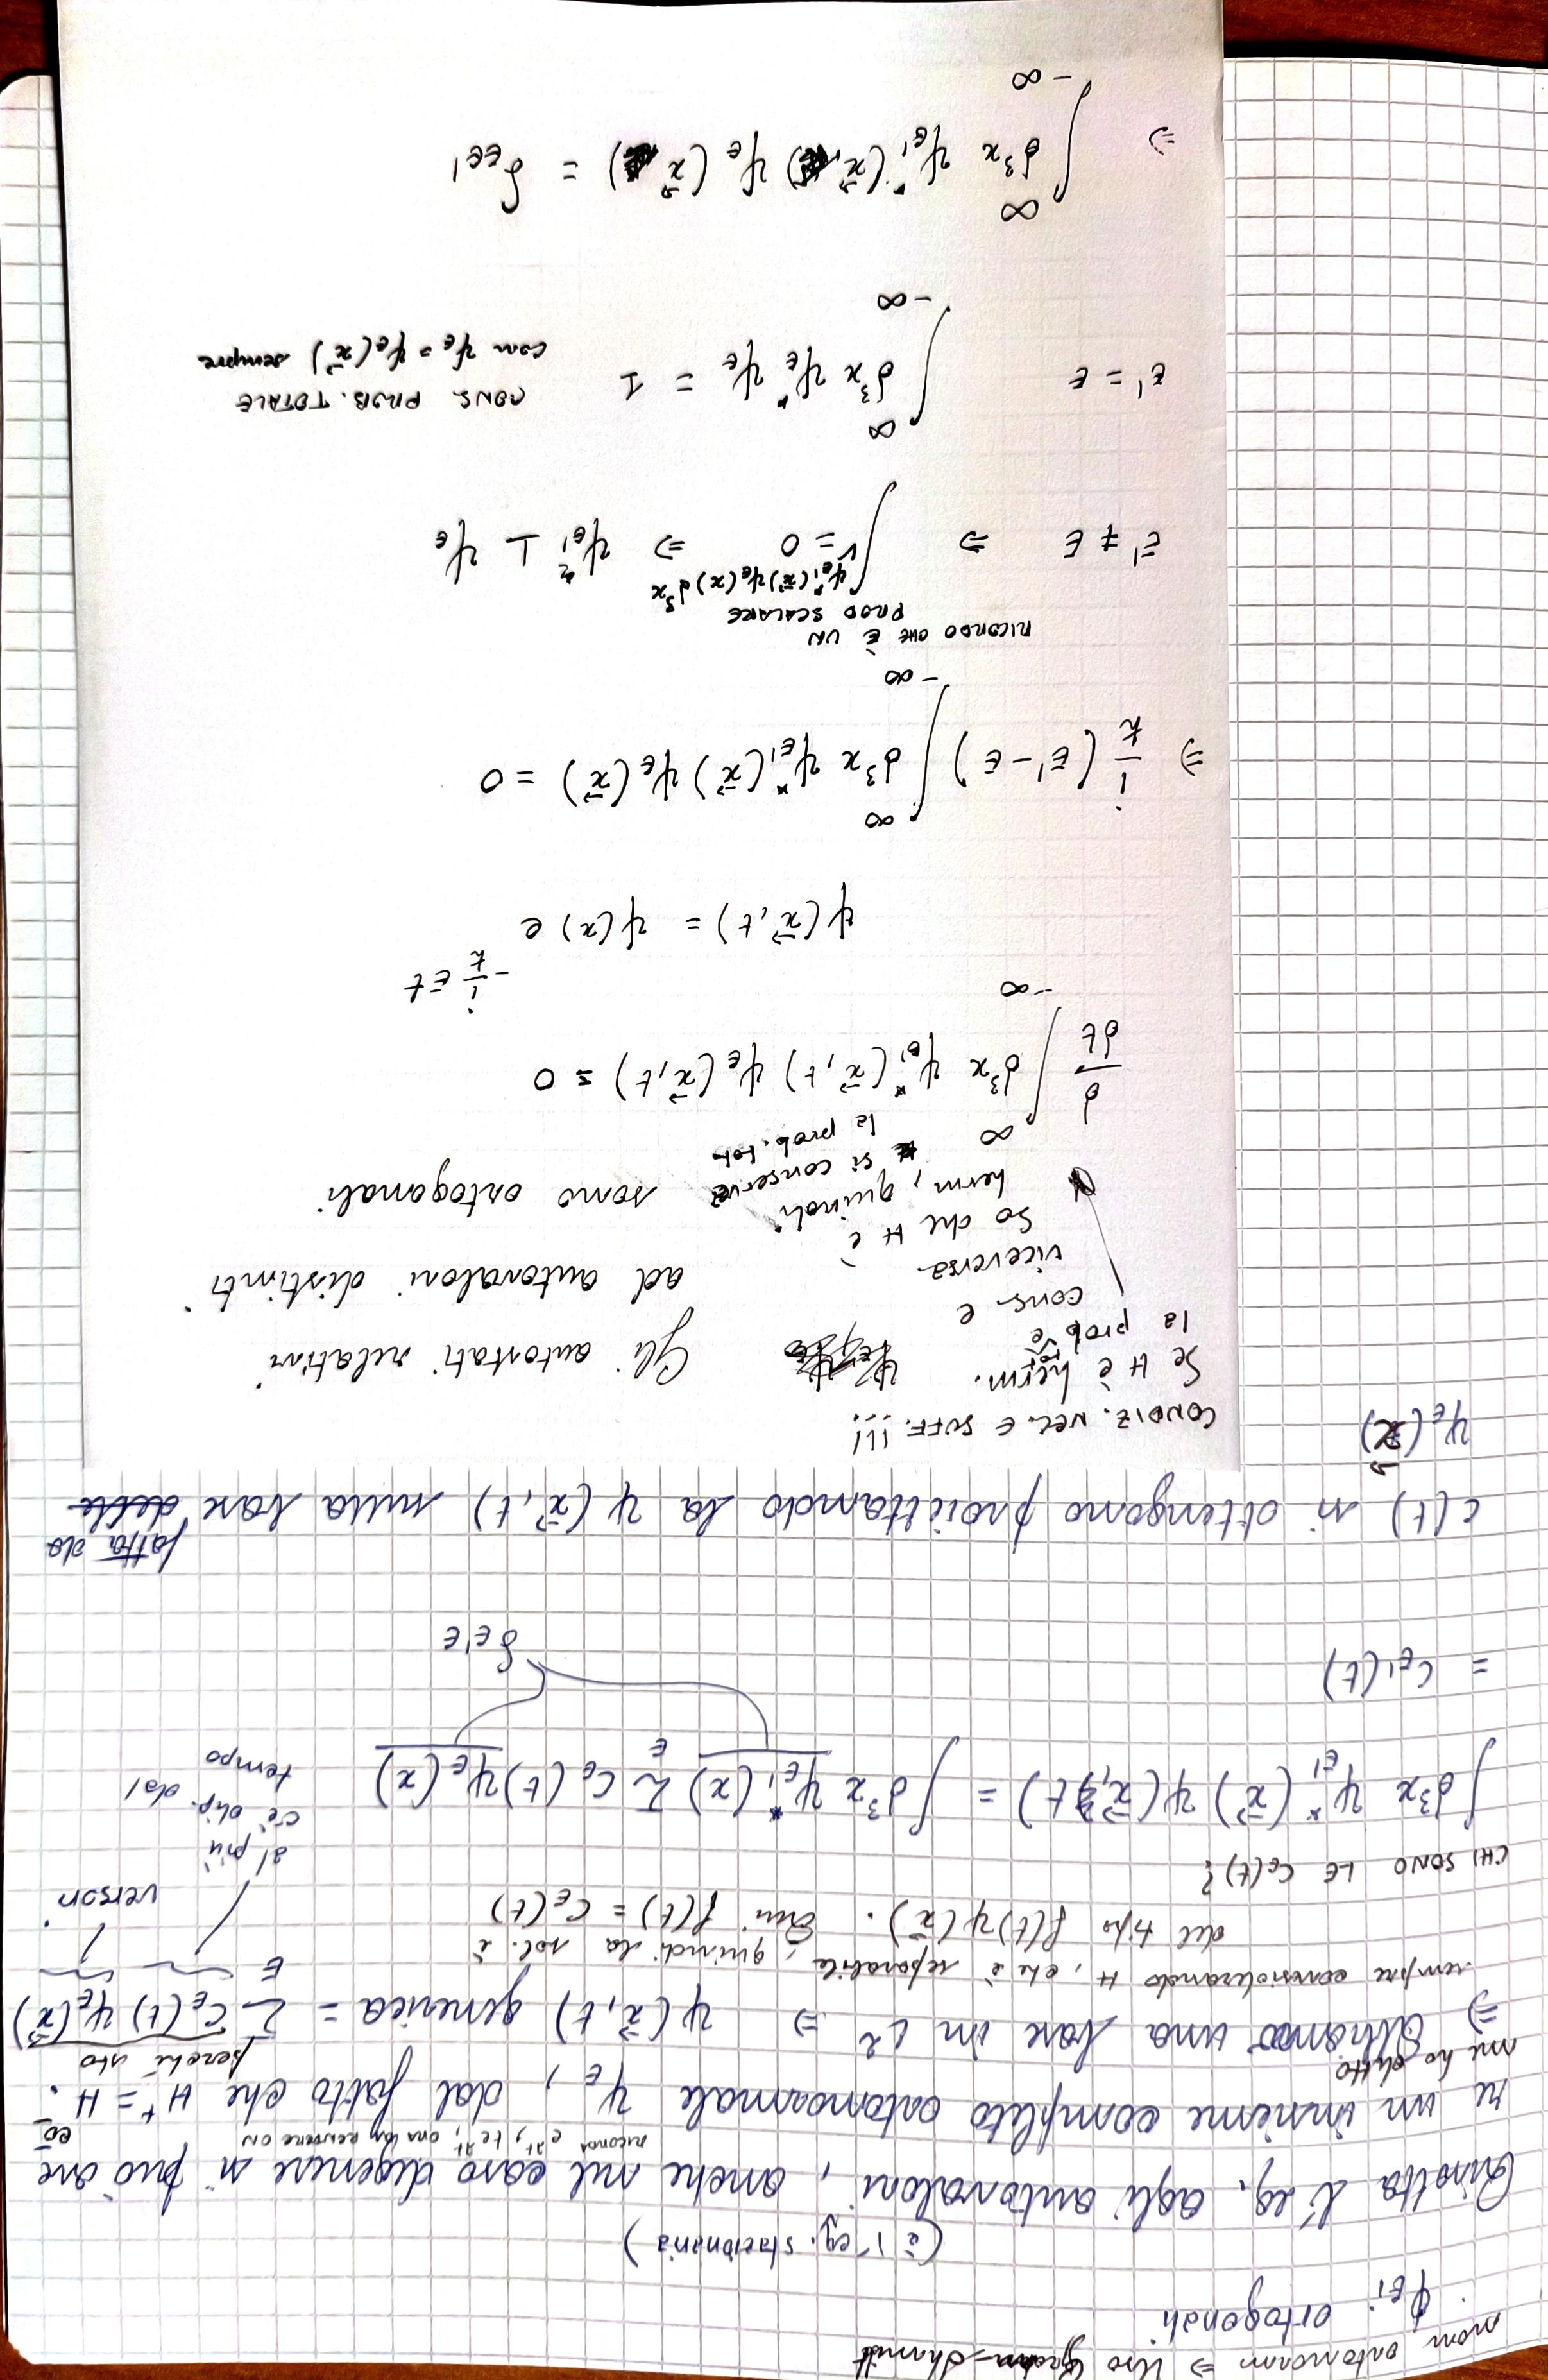 non ortonorm ⇒ Uso Gram-Shmidt
φ_Ei ortogonali
(è l'eq. stazionaria)
Risolta l'eq. agli autovalori, anche nel caso degenere si può ave
ricorda e^λt, te^λt,
re un insieme completo ortonormale ψ_E, dal fatto che H⁺ = H. co
me ho detto
perché sto
⇒ Abbiamo una base in L² ⇒ ψ(x⃗,t) generica = Σ_E c_E(t) ψ_E(x⃗)
sempre considerando H, che è separabile, quindi la sol. è
del tipo f(t)ψ(x⃗). Qui f(t) = c_E(t)
versori
al più
c'è dip. dal
tempo
CHI SONO LE c_E(t)?
∫d³x ψ*_E'(x⃗) ψ(x⃗,t) = ∫d³x ψ*_E'(x) Σ_E c_E(t) ψ_E(x)
= c_E'(t)
δ_E'E
c(t) si ottengono proiettando la ψ(x⃗,t) sulla base delle fatta da
ψ_E(x⃗)
CONDIZ. NEC. E SUFF. !!!
Se H è herm.
la prob tot è
cons. e
viceversa.
So che H è
herm, quindi
si conserva
la prob. tot
Gli autostati relativi
ad autovalori distinti
sono ortogonali
d/dt ∫_-∞^∞ d³x ψ*_E'(x⃗,t) ψ_E(x⃗,t) = 0
ψ(x⃗,t) = ψ(x) e^(-i/ħ Et)
⇒ i/ħ (E'-E) ∫_-∞^∞ d³x ψ*_E'(x⃗) ψ_E(x⃗) = 0
RICORDO CHE È UN
PROD SCALARE
E' ≠ E ⇒ ∫_V ψ*_E'(x⃗) ψ_E(x) d³x = 0 ⇒ ψ*_E' ⊥ ψ_E
E' = E ∫_-∞^∞ d³x ψ*_E ψ_E = 1 CONS. PROB. TOTALE
con ψ_E = ψ_E(x⃗) sempre
⇒ ∫_-∞^∞ d³x ψ*_E'(x⃗) ψ_E(x⃗) = δ_EE'